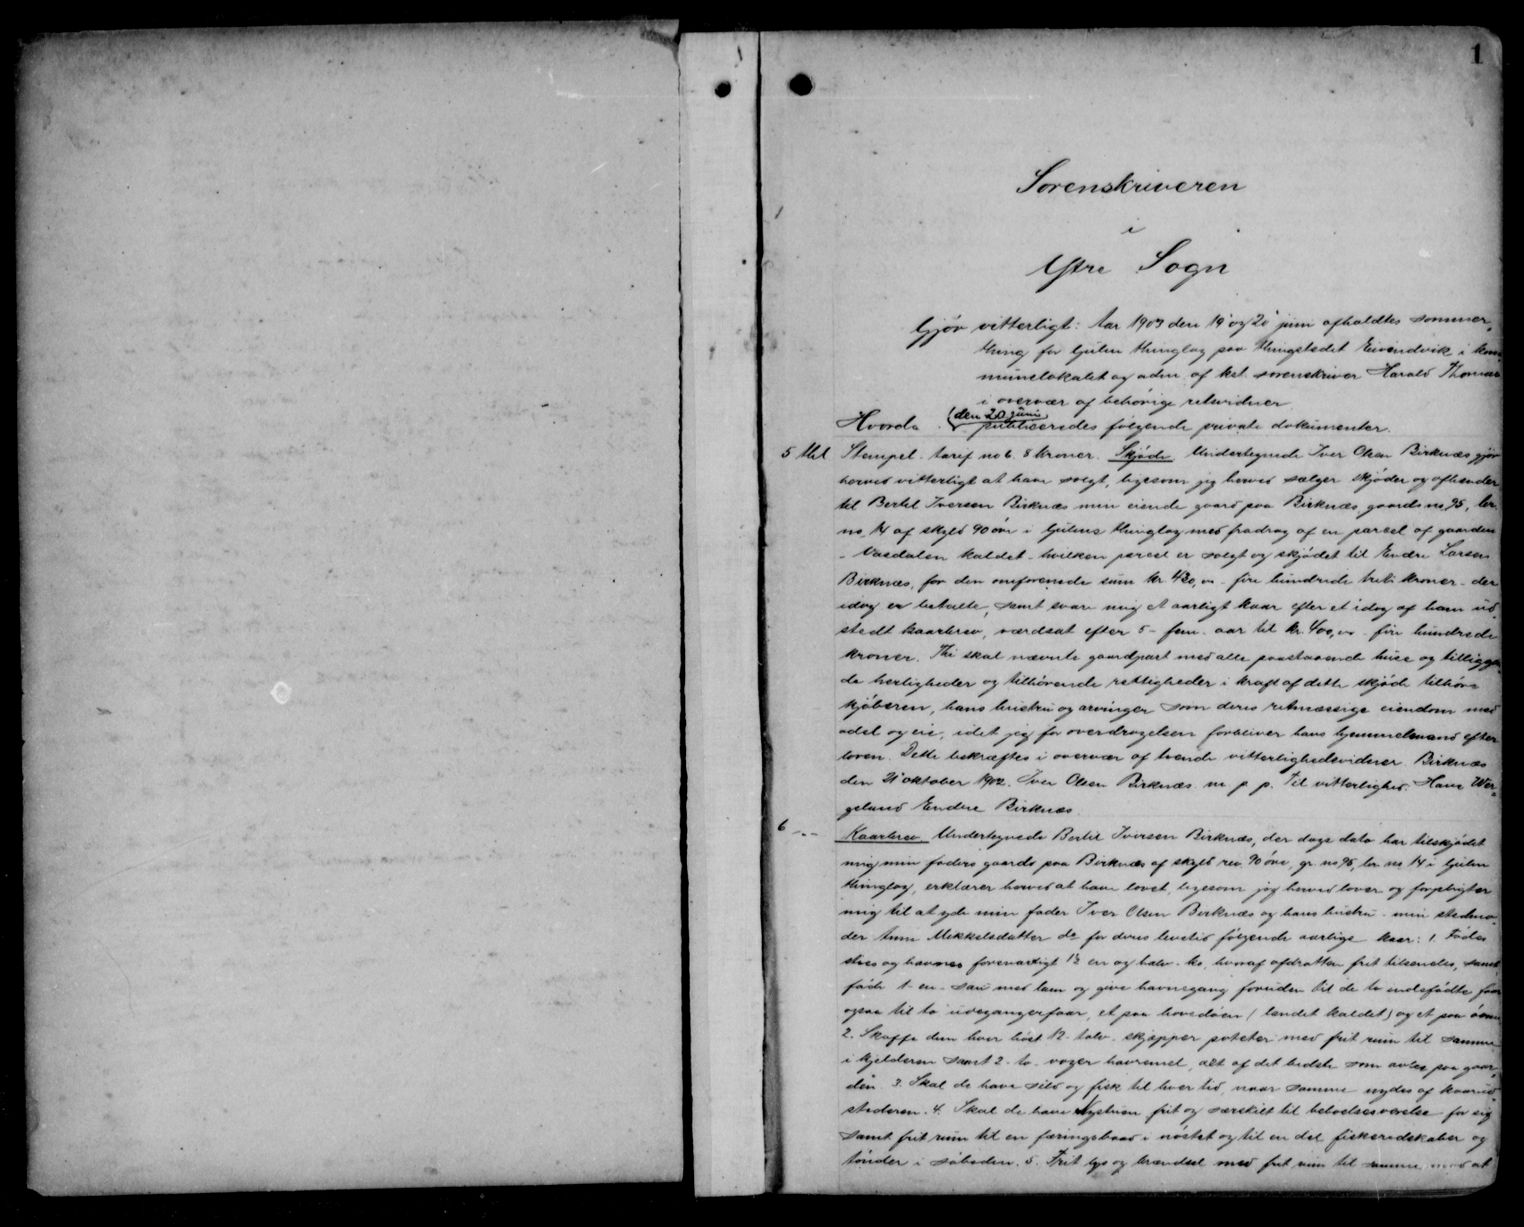 1
Sorenskriveren
i
Ytre Sogn
Gjør vitterligt: Aar 1907 den 19 og 20 juni afholdtes sommer-
thing for Gulen thinglag paa thingstedet Eivindvik i kom-
munelokalet og aden. af kst. sorenskriver Harald Thomas
i overvær af behørige retsvidner
Hvorda (den 20 juni) publiceredes følgende private dokumenter.
5 Stempel tarif no 6. 8 kroner. Skjøde Undertegnede Iver Olsen Birknæs gjør
herved vitterligt at have solgt, ligesom jeg herved sælger skjøder og afhender
til Bertil Iversen Birknæs min eiende gaard paa Birknæs, gaards no 95, br.
no 14 af skyld 90 øre i Gulens thinglag med fradrag af en parcel af gaarden
- Vasdalen kaldet - hvilken parcel er solgt og skjødet til Endre Larsen
Birknæs, for den omforenede sum kr 430,00 - fire hundrede treti kroner - der
idag er betalte, samt svare mig et aarligt kaar efter et idag af ham ud-
stedt kaarbrev, værdsat efter 5 - fem - aar til kr. 400,00 - fire hundrede
kroner. Thi skal nævnte gaardpart med alle paastaaende huse og tilliggen-
de herligheder og tilhørende rettigheder i kraft af dette skjøde tilhøre
kjøberen, hans hustru og arvinger som deres retmæssige eiendom med
odel og eie, idet jeg for overdragelsen forbliver hans hjemmelsmand efter
loven. Dette bekræftes i overvær af tvende vitterlighedsvidner. Birknæs
den 21 oktober 1902. Iver Olsen Birknæs m p p. Til vitterlighed: Hans Wer-
geland Endre Birknæs.
6 - " - Kaarbrev Undertegnede Bertil Iversen Birknæs, der dags dato har tilskjødet
mig min faders gaards paa Birknæs af skyld rev. 90 øre, gr. no 95, br. no 14 i Gulen
thinglag, erklærer herved at have lovet, ligesom jeg herved lover og forpligter
mig til at yde min fader Iver Olsen Birknæs og hans hustru - min stedmo-
der Anna Mikkelsdatter do for deres levetid følgende aarlige kaar: 1. Fødes
stres og havnes forsvarligt 1½ en og halv - ko, hvoraf afdrotten frit tilsendes, samt
føde 1 - en - sau med lam og give havnegang foruden til de to indefødte faar
ogsaa til to udegangerfaar, et paa hovedøen (landet kaldet) og et paa øerne
2. Skaffe dem hver høst 12 - tolv - skjæpper poteter med frit rum til samme
i kjelderen samt 2 - to - voger havremel, alt af det bedste som avles paa gaar-
den. 3. Skal de have sild og fisk til hver tid, naar samme nydes af kaarud-
stederen. 4. Skal de have Nystuen frit og særskilt til beboelsesværelse for sig
samt frit rum til en færingsbaad i nøstet og til en del fiskeredskaber og
tønder i søboden. 5. Frit lys og brændsel med frit rum til samme, med at